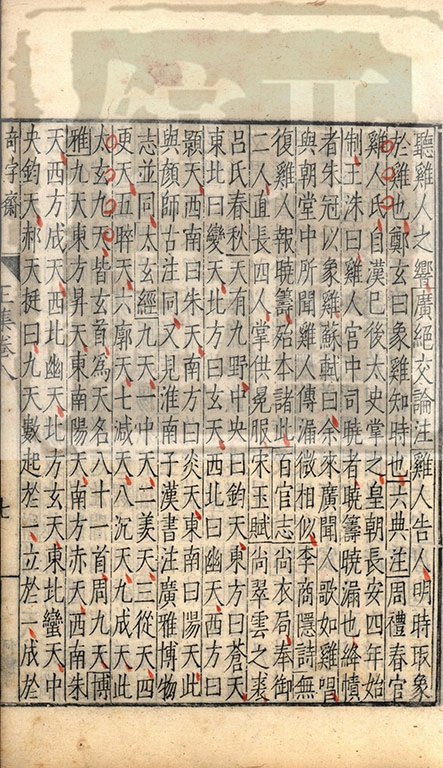 聽雞人之響廣絕交論注雞人告人明時取象
於雞也鄭玄曰象雞知時也六典注周禮春官
雞人氏自漢巳後太史掌之皇朝長安四年始
制王洙曰雞人宮中司曉者曉籌曉漏也絳幘
者朱冠以象雞蘇軾曰余來廣聞人歌如雞唱
與朝堂中所聞雞人傳漏微相似李商隱詩無
復雞人報曉籌殆本諸此百官志尚衣局奉御
二人直長四人掌供冕服宋玉賦尚翠雲之裘
呂氏春秋天有九野中央曰鈞天東方曰蒼天
東北曰變天北方曰玄天西北曰幽天西方曰
顥天西南曰朱天南方曰炎天東南曰陽天此
與顏師古注同又見淮南子漢書注廣雅博物
志並同太玄經九天一中天二羨天三從天四
更天五睟天六廓天七減天八沉天九成天此
太玄九天皆玄首為天名八十一首周九天博
雅九天東方昇天東南陽天南方赤天西南朱
天西方成天西北幽天北方玄天東北蠻天中
央鈞天郝天挺曰九天數起於一立於一成於
奇字齋 王集卷八 七